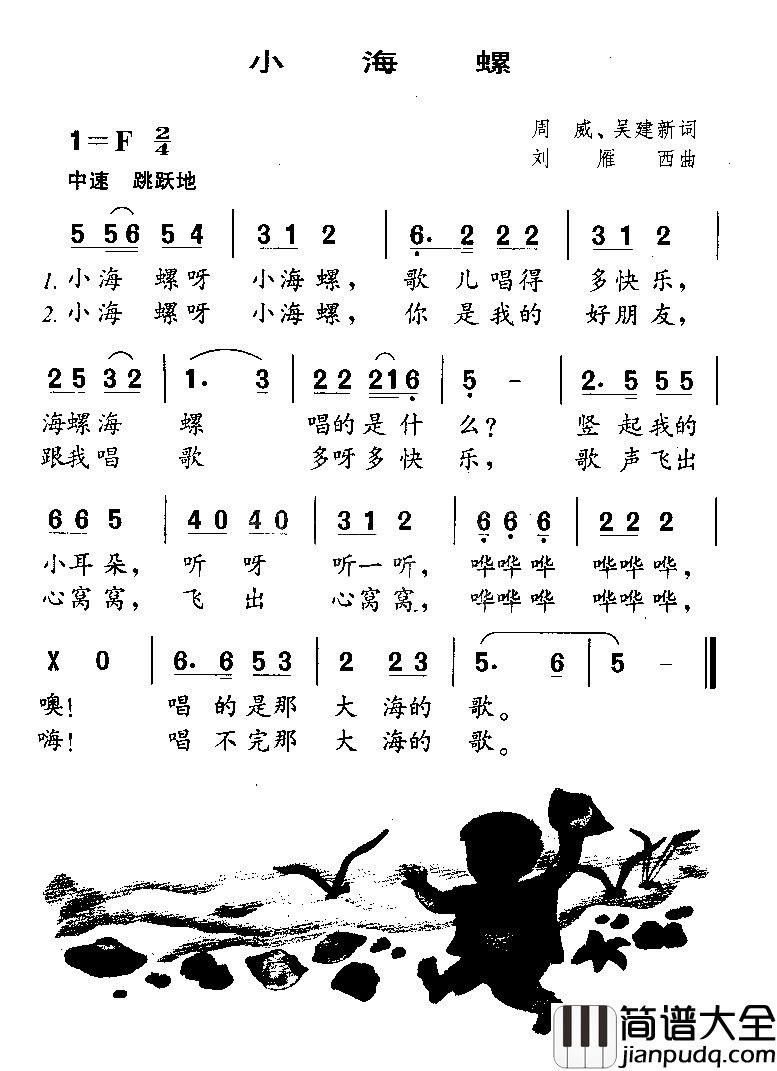 小 海 螺
1=F 2/4
周 威、吴建新词
中速 跳跃地
刘 雁 西曲
5 56 54 | 31 2 | 6. 2 22 2 | 31 2 |
1. 小海 螺呀 小海螺， 歌儿唱得 多快乐，
2. 小海 螺呀 小海螺， 你是我的 好朋友，
25 32 | 1. 3 | 22 216 | 5 - | 2. 5 55 |
海螺海 螺 唱的是什 么？ 竖起我的
跟我唱 歌 多呀多快 乐， 歌声飞出
66 5 | 40 40 | 31 2 | 6 6 6 | 2 2 2 |
小耳朵， 听 呀 听一听， 哗哗哗 哗哗哗，
心窝窝， 飞 出 心窝窝， 哗哗哗 哗哗哗，
X 0 | 6. 6 53 | 2 23 | 5. 6 | 5 - ‖
噢！ 唱的是那 大海的 歌。
嗨！ 唱不完那 大海的 歌。
简谱大全
jianpudq.com